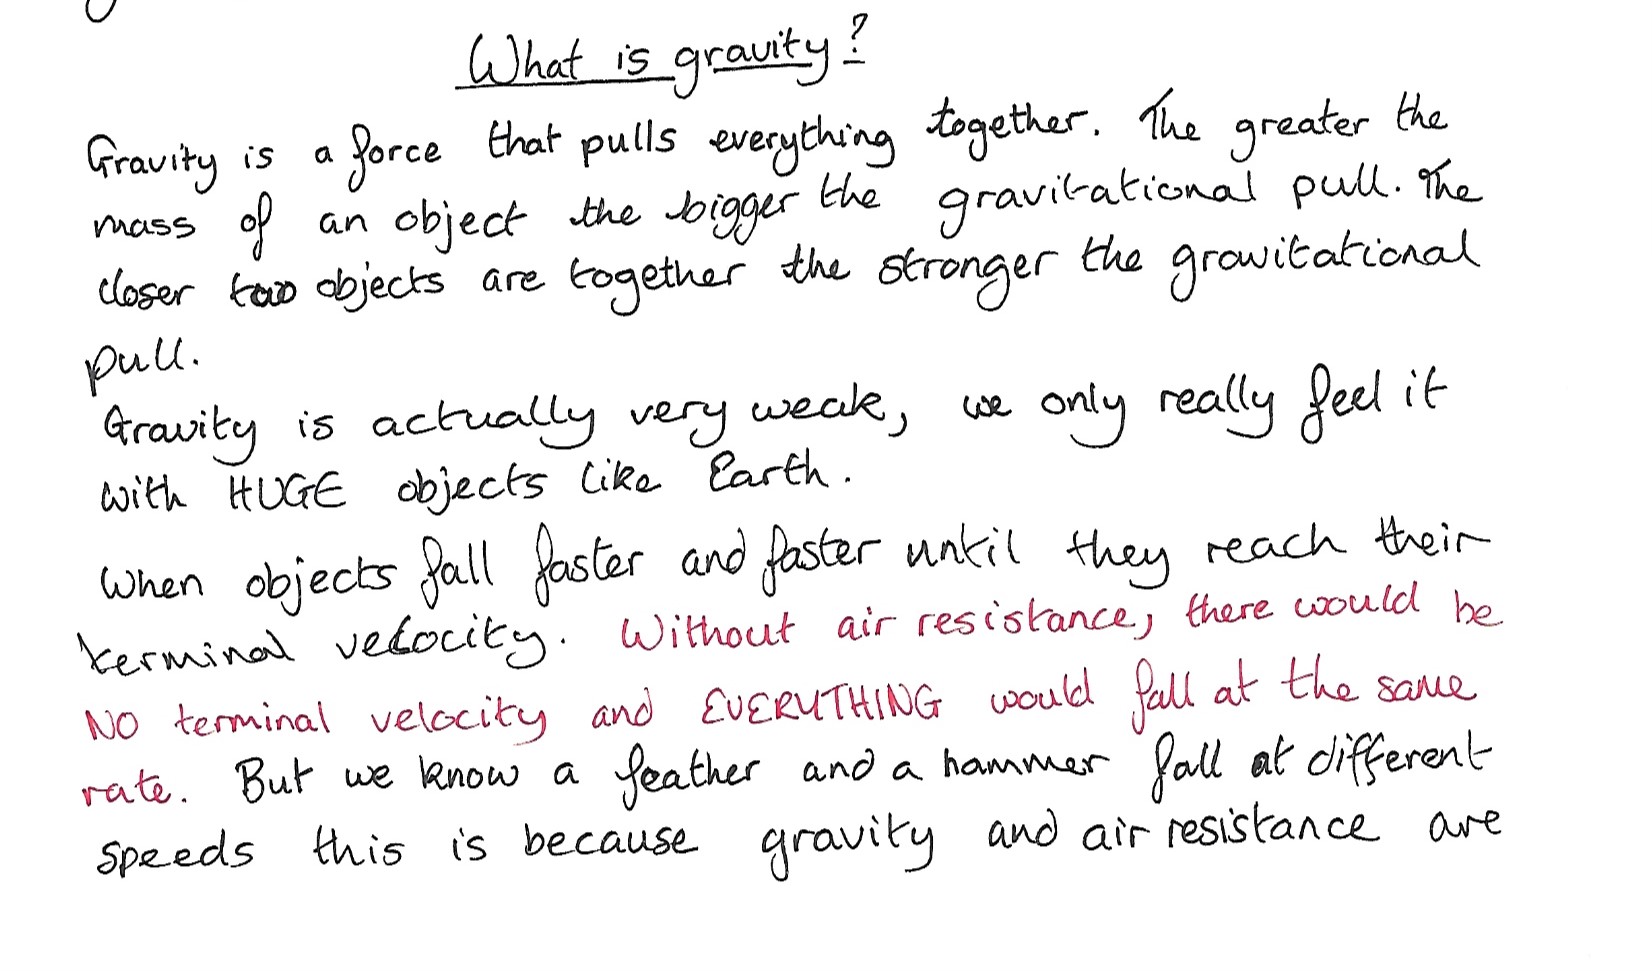 What is gravity?
Gravity is a force that pulls everything together. The greater the
mass of an object the bigger the gravitational pull. The
closer two objects are together the stronger the gravitational
pull.
Gravity is actually very weak, we only really feel it
with HUGE objects like Earth.
When objects fall faster and faster until they reach their
terminal velocity. Without air resistance, there would be
NO terminal velocity and EVERYTHING would fall at the same
rate. But we know a feather and a hammer fall at different
speeds this is because gravity and air resistance are